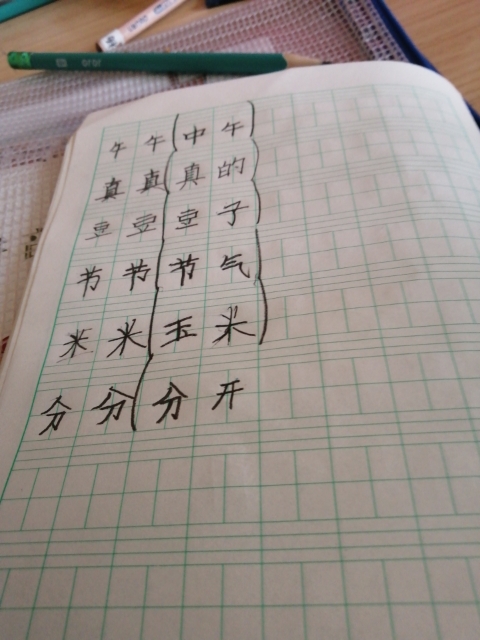 午 午 (中 午)
真 真 (真 的)
豆 豆 (豆 子)
节 节 (节 气)
米 米 (玉 米)
分 分 (分 开